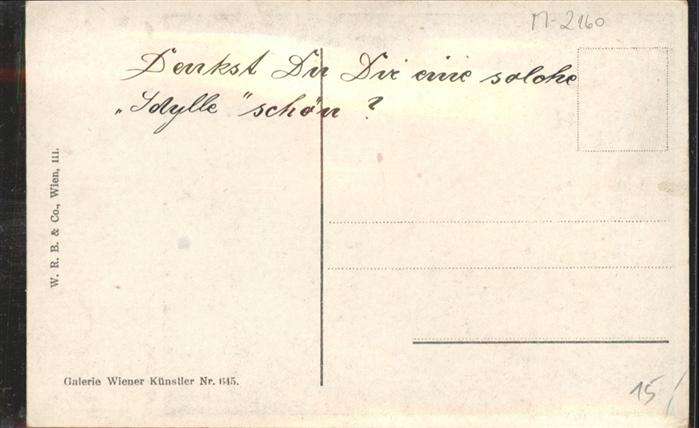 M-2160
Denkst Du Dir eine solche
„Idylle" schön?
W. R. B. & Co., Wien, III.
Galerie Wiener Künstler Nr. 645.
15/